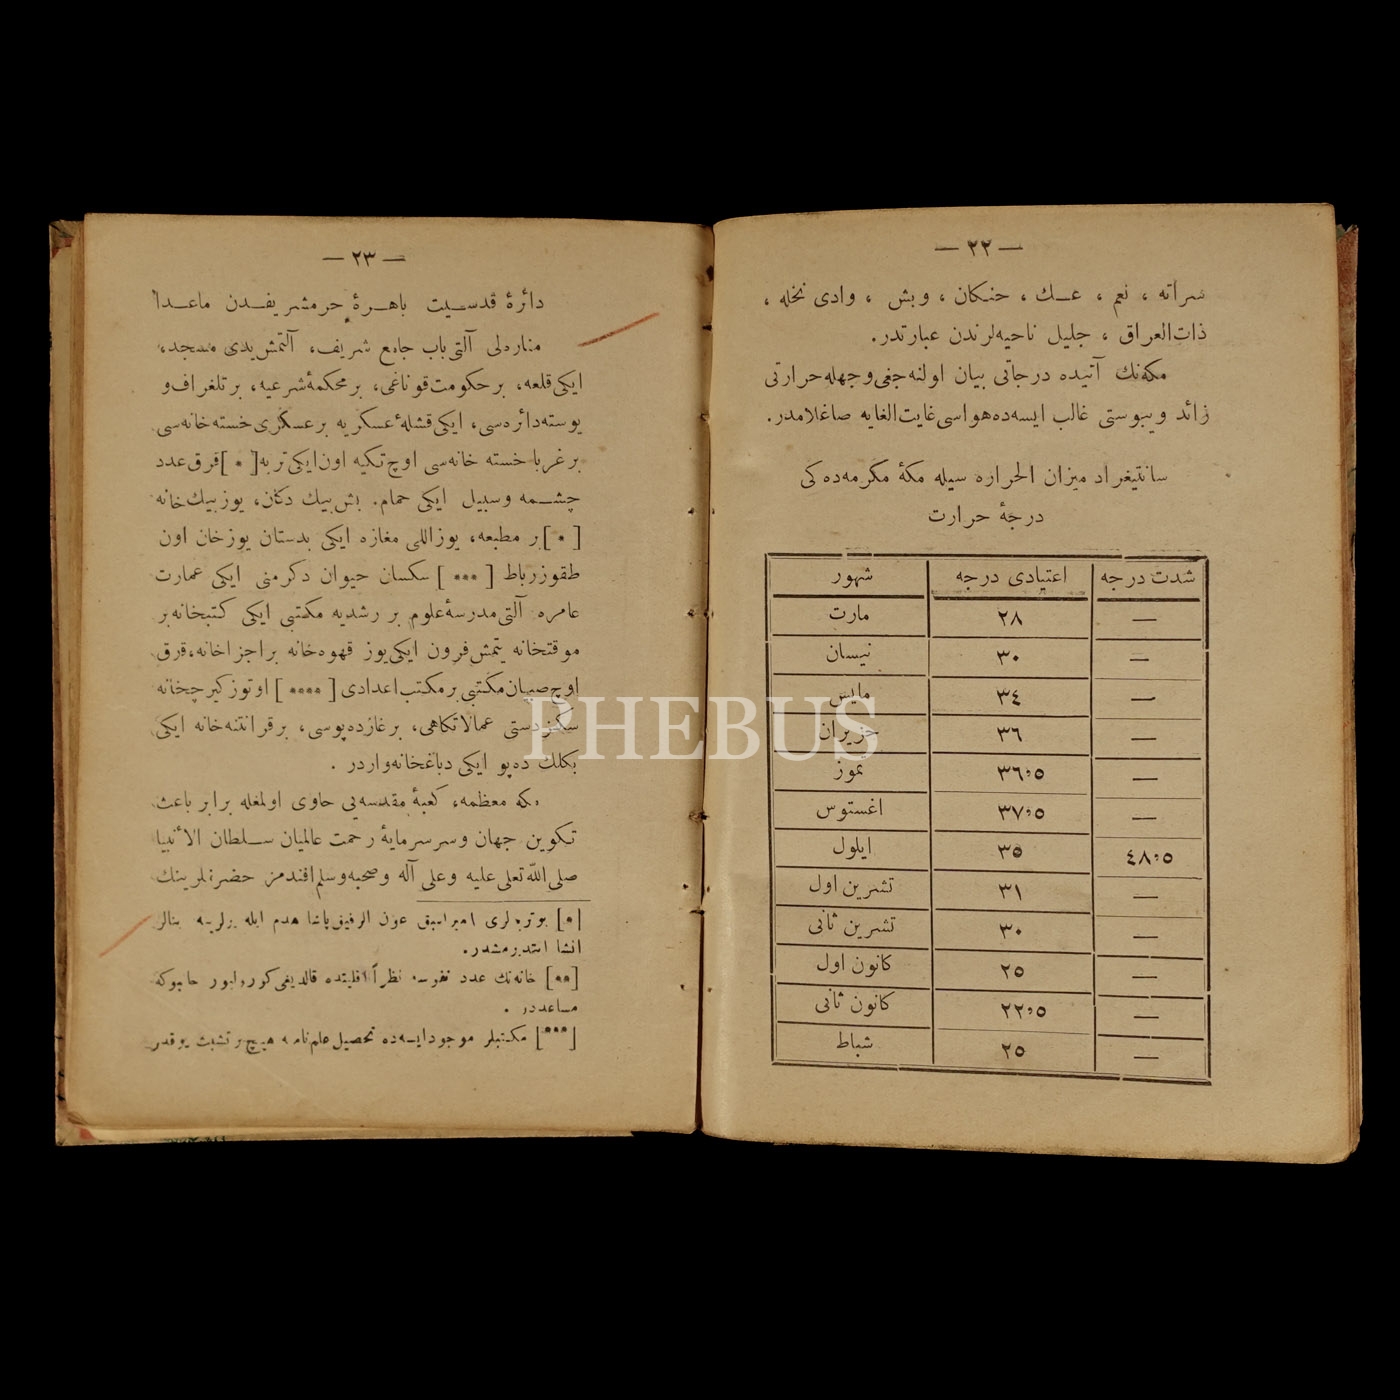 — ٢٢ —
سراته ، نعم ، عك ، حنكان ، وبش ، وادی نخله ،
ذات‌العراق ، جليل ناحيه‌لرندن عبارتدر.
مكه‌نك آتيده درجاتی بيان اولنه‌جغی وجهله حرارتی
زائد ويبوستی غالب ايسه‌ده هواسی غايت‌الغايه صاغلامدر.
سانتيغراد ميزان الحراره سيله مكۀ مكرمه‌ده كی
درجۀ حرارت
شهور اعتيادی درجه شدت درجه
مارت ٢٨ —
نيسان ٣٠ —
مايس ٣٤ —
حزيران ٣٦ —
تموز ٣٦،٥ —
اغستوس ٣٧،٥ —
ايلول ٣٥ ٤٨،٥
تشرين اول ٣١ —
تشرين ثانی ٣٠ —
كانون اول ٢٥ —
كانون ثانی ٢٢،٥ —
شباط ٢٥ —
— ٢٣ —
دائرۀ قدسيت باهرۀ حرمشريفدن ماعدا
مناره‌لی آلتی باب جامع شريف، آلتمش يدی مسجد،
ايكی قلعه، بر حكومت قوناغی، بر محكمۀ شرعيه، بر تلغراف و
پوسته دائره‌سی، ايكی قشلۀ عسكريه بر عسكری خسته خانه‌سی
بر غربا خسته خانه‌سی اوچ تكيه اون ايكی تربه [*] قرق عدد
چشمه وسبيل ايكی حمام. بش بيك دكان، يوز بيك خانه
[*] ر مطبعه، يوز اللی مغازه ايكی بدستان يوز خان اون
طقوز رباط [***] سكسان حيوان دكرمنی ايكی عمارت
عامره آلتی مدرسۀ علوم بر رشديه مكتبی ايكی كتبخانه بر
موقتخانه يتمش فرون ايكی يوز قهوه خانه بر اجزاخانه، قرق
اوچ صبيان مكتبی بر مكتب اعدادی [****] اوتوز كيرجخانه
سكز دستی عمالاتكاهی، بر غاز ده‌پوسی، بر قرانتنه خانه ايكی
بكلك ده‌پو ايكی دباغخانه واردر .
مكه معظمه، كعبۀ مقدسه‌يی حاوی اولمغله برابر باعث
تكوين جهان وسر سرمايۀ رحمت عالميان سلطان الأنبيا
صلی الله تعلی عليه وعلی آله وصحبه وسلم افندمز حضرتلرينك
[*] بوتربه‌لری امير اسبق عون الرفيق پاشا هدم ايله يرلرينه بنالر
انشا ايتديرمشدر.
[**] خانه‌نك عدد نفوسه نظراً اقليتده قالديغی كوريليور
مساعددر .
[***] مكتبلر موجود ايسه‌ده تحصيل علم نامنه هيچ بر تشبث يوقدر
PHEBUS